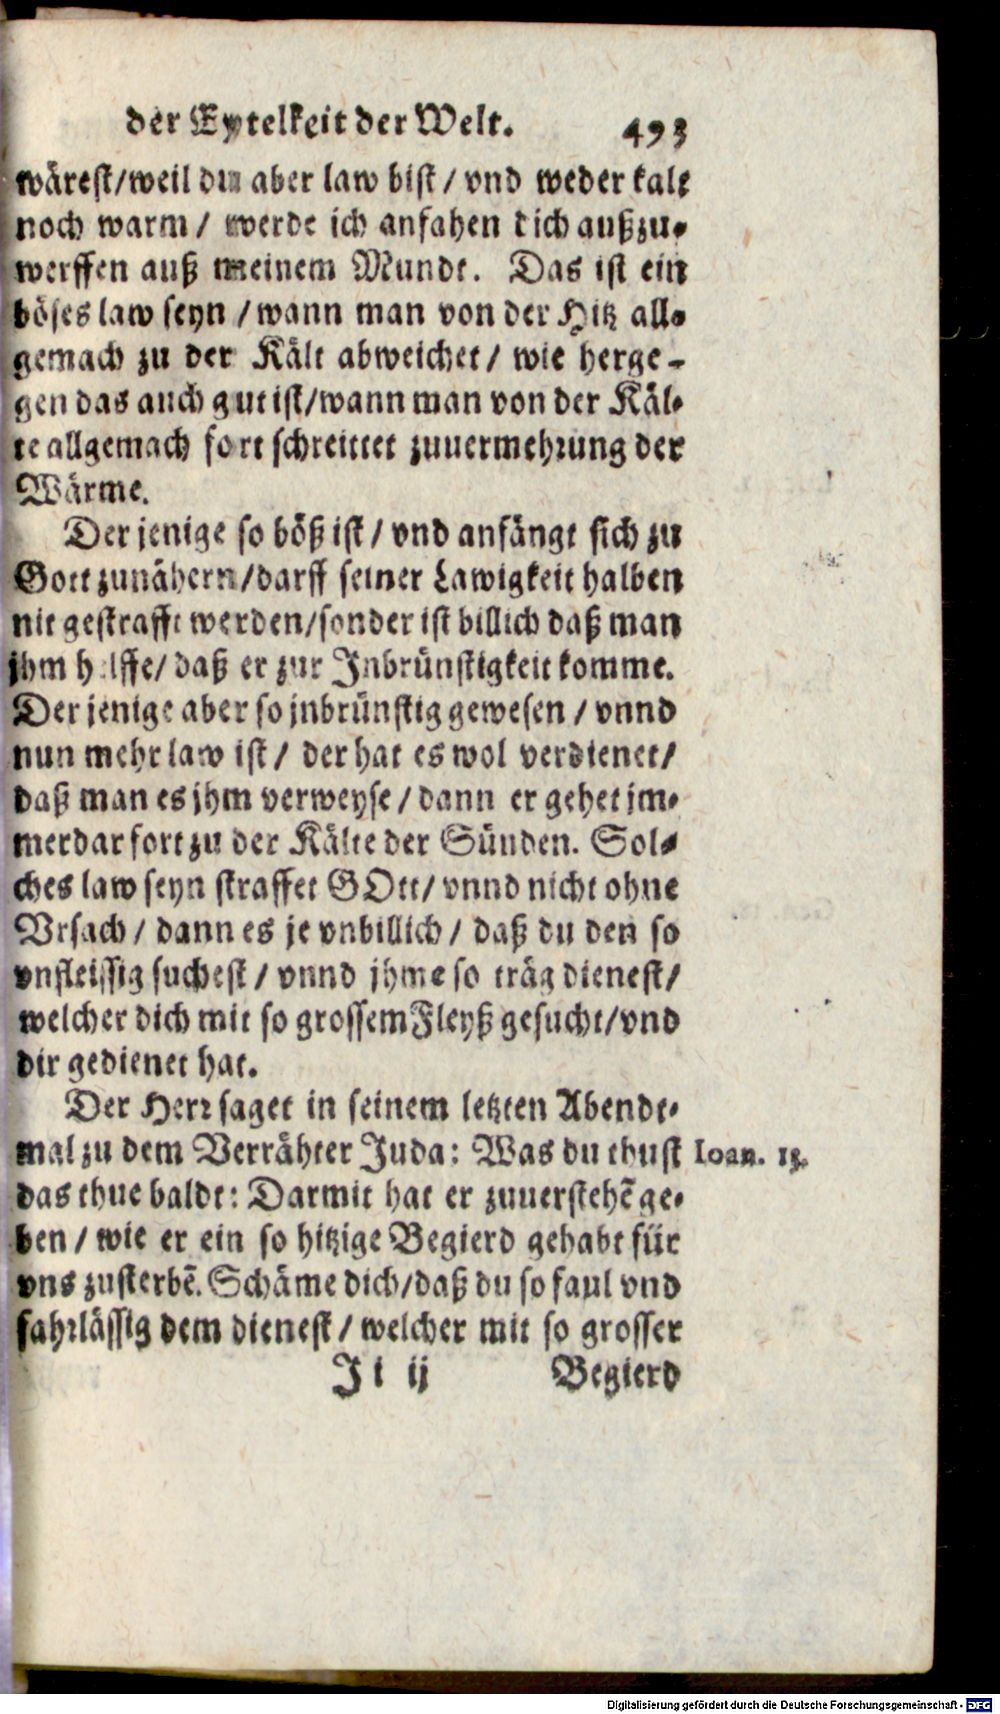 der Eytelkeit der Welt. 493
wärest/weil du aber law bist/ vnd weder kalt
noch warm/ werde ich anfahen dich außzu-
werffen auß meinem Mundt. Das ist ein
böses law seyn /wann man von der Hitz all-
gemach zu der Kält abweichet/ wie herge-
gen das auch gut ist/wann man von der Käl-
te allgemach fort schreittet zuuermehrung der
Wärme.
Der jenige so böß ist/ vnd anfängt sich zu
Gott zunähern/darff seiner Lawigkeit halben
nit gestrafft werden/sonder ist billich daß man
jhm helffe/ daß er zur Inbrünstigkeit komme.
Der jenige aber so jnbrünstig gewesen / vnnd
nun mehr law ist/ der hat es wol verdienet/
daß man es jhm verweyse/ dann er gehet jm-
merdar fort zu der Kälte der Sünden. Sol-
ches law seyn straffet GOtt/ vnnd nicht ohne
Vrsach/ dann es je vnbillich/ daß du den so
vnfleissig suchest/ vnnd jhme so träg dienest/
welcher dich mit so grossem Fleyß gesucht/vnd
dir gedienet hat.
Der Herr saget in seinem letzten Abendt-
mal zu dem Verrähter Juda: Was du thust Ioan. 13.
das thue baldt: Darmit hat er zuuerstehē ge-
ben / wie er ein so hitzige Begierd gehabt für
vns zusterbē. Schäme dich/daß du so faul vnd
fahrlässig dem dienest/ welcher mit so grosser
Ji ij Begierd
Digitalisierung gefördert durch die Deutsche Forschungsgemeinschaft - DFG